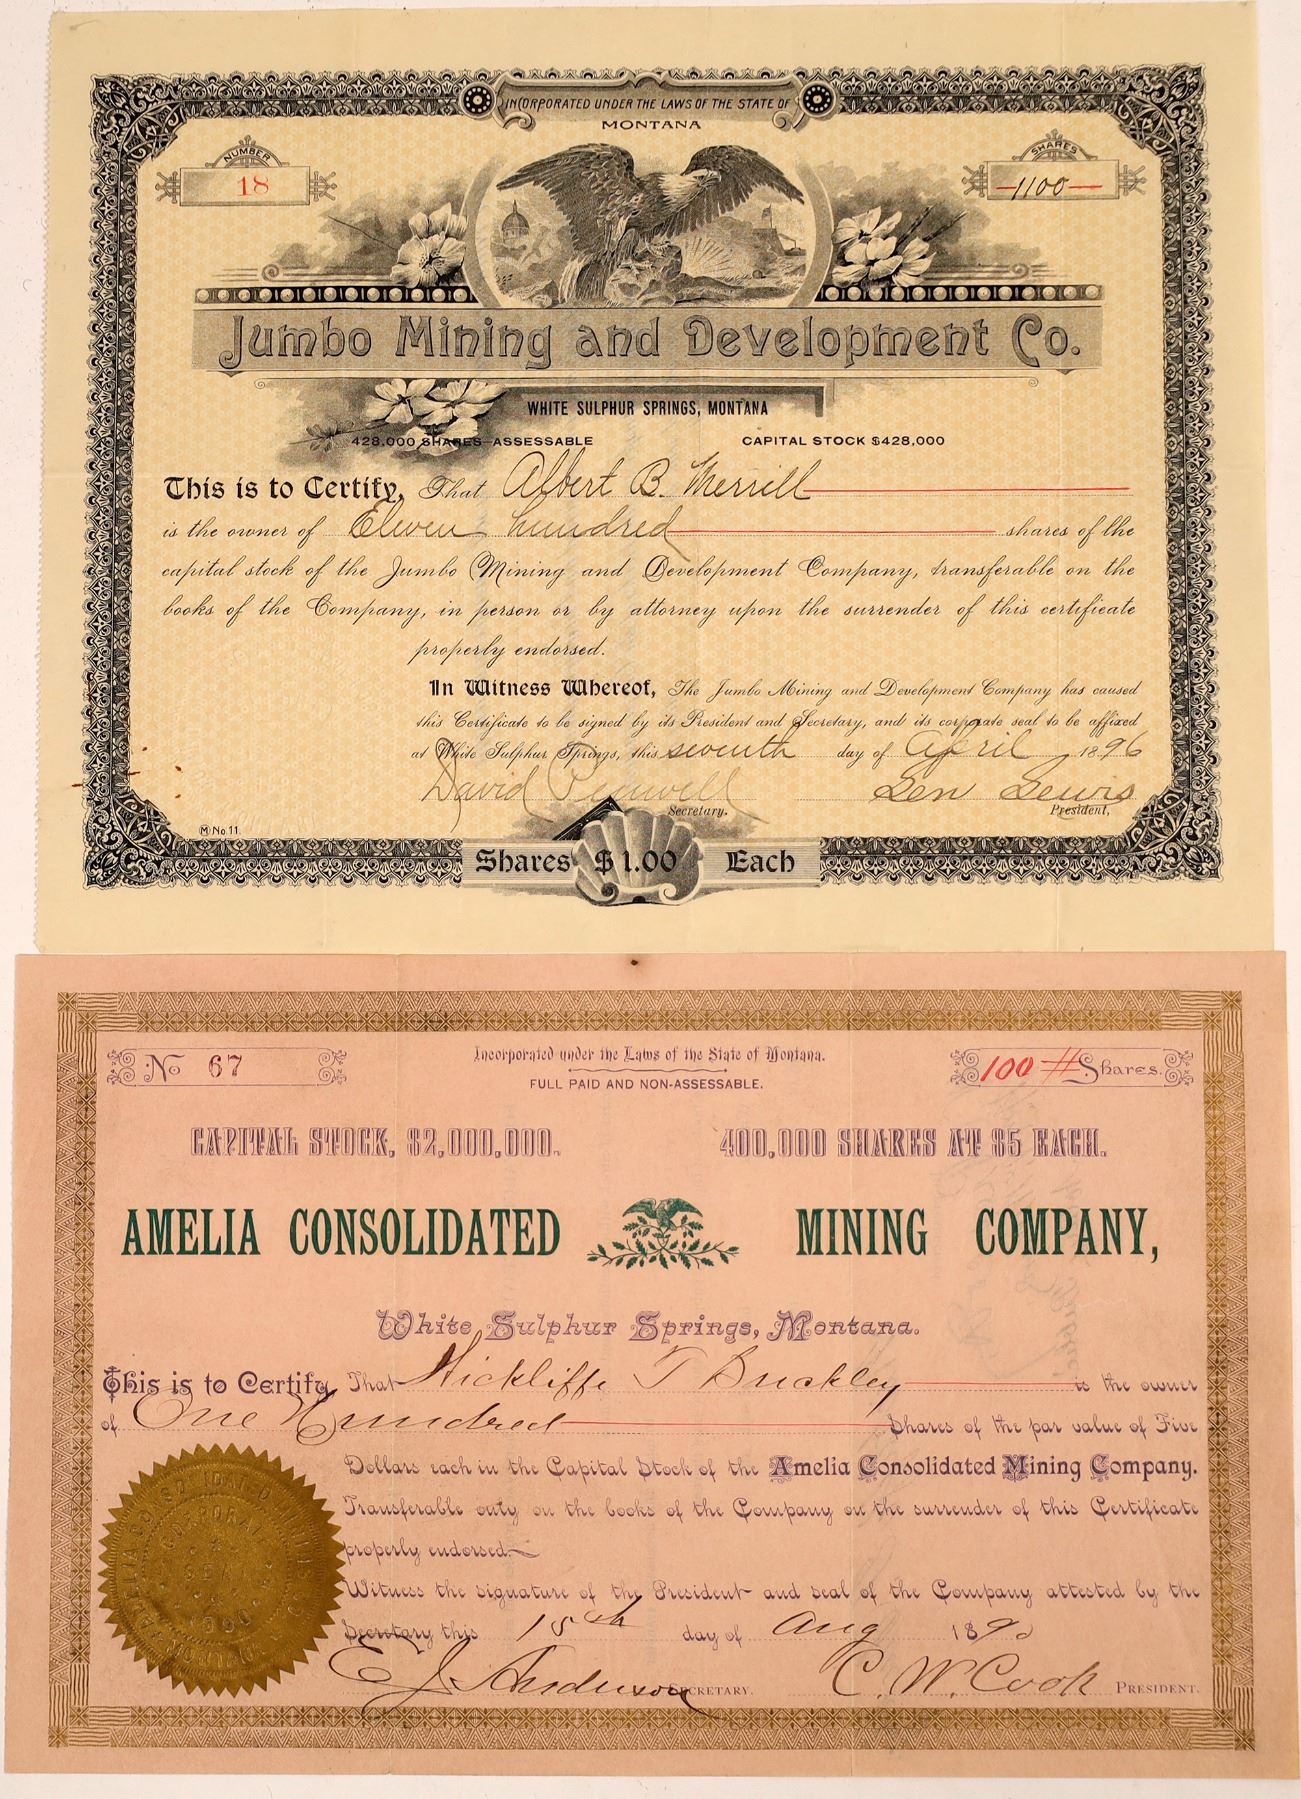 INCORPORATED UNDER THE LAWS OF THE STATE OF
MONTANA
NUMBER
18
SHARES
1100
Jumbo Mining and Development Co.
WHITE SULPHUR SPRINGS, MONTANA
428,000 SHARES ASSESSABLE CAPITAL STOCK $428,000
This is to Certify, That Albert B. Merrill
is the owner of Eleven hundred shares of the
capital stock of the Jumbo Mining and Development Company, transferable on the
books of the Company, in person or by attorney upon the surrender of this certificate
properly endorsed.
In Witness Whereof, The Jumbo Mining and Development Company has caused
this Certificate to be signed by its President and Secretary, and its corporate seal to be affixed
at White Sulphur Springs, this seventh day of April 1896
David Penwell Len Lewis
Secretary. President,
M No. 11.
Shares $1.00 Each
No 67
Incorporated under the Laws of the State of Montana.
100 Shares.
FULL PAID AND NON-ASSESSABLE.
CAPITAL STOCK, $2,000,000. 400,000 SHARES AT $5 EACH.
AMELIA CONSOLIDATED MINING COMPANY,
White Sulphur Springs, Montana.
This is to Certify That Wickliffe T Buckley is the owner
of One Hundred Shares of the par value of Five
Dollars each in the Capital Stock of the Amelia Consolidated Mining Company.
Transferable only on the books of the Company on the surrender of this Certificate
properly endorsed.
Witness the signature of the President and seal of the Company attested by the
Secretary this 15th day of Aug 1890
E J Anderson SECRETARY. C. W. Cook PRESIDENT.
AMELIA CONSOLIDATED MINING CO
CORPORATE
SEAL
MONTANA